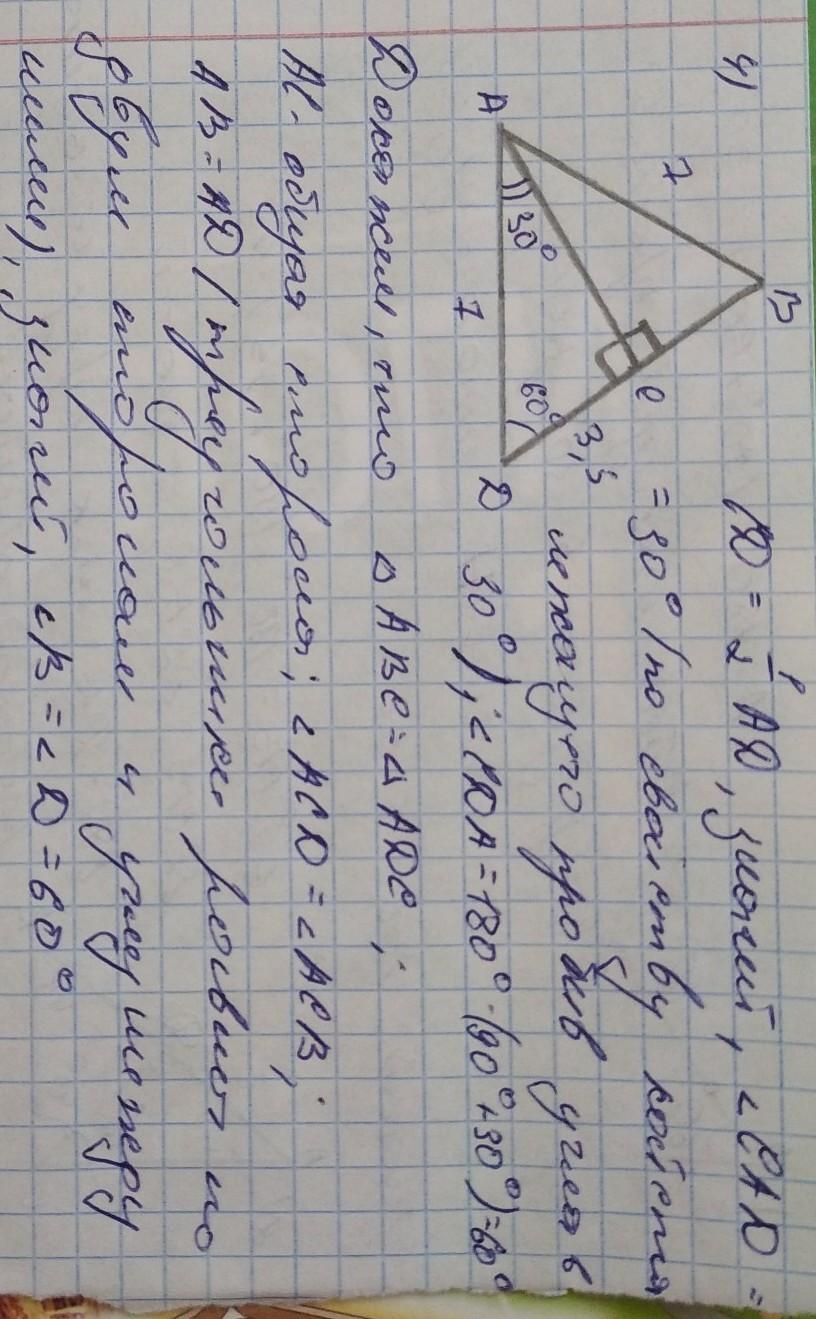 4)
B
7
C
3,5
A
30°
60°
7
D
CD = 1/2 AD, значит, ∠CAD =
= 30° (по свойству катета
лежащего против угла в
30°); ∠CDA = 180° - (90° + 30°) = 60°
Докажем, что △ABC = △ADC;
AC - общая сторона; ∠ACD = ∠ACB;
AB = AD (треугольники равны по
двум сторонам и углу между
ними), значит, ∠B = ∠D = 60°